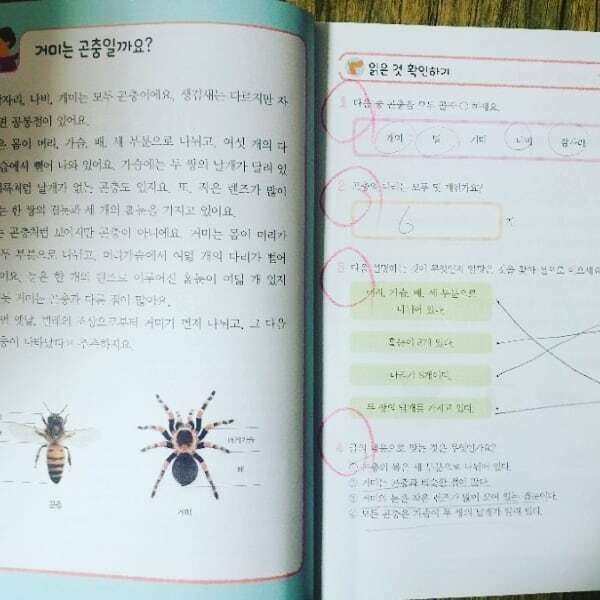 거미는 곤충일까요?
잠자리, 나비, 개미는 모두 곤충이에요. 생김새는 다르지만 자
면 공통점이 있어요.
은 몸이 머리, 가슴, 배, 세 부분으로 나뉘고, 여섯 개의 다
슴에서 뻗어 나와 있어요. 가슴에는 두 쌍의 날개가 달려 있
벼룩처럼 날개가 없는 곤충도 있지요. 또, 작은 렌즈가 많이
는 한 쌍의 겹눈과 세 개의 홑눈을 가지고 있어요.
는 곤충처럼 보이지만 곤충이 아니에요. 거미는 몸이 머리가
두 부분으로 나뉘고, 머리가슴에서 여덟 개의 다리가 뻗어
어요. 눈은 한 개의 렌즈로 이루어진 홑눈이 여덟 개 있지
듯 거미는 곤충과 다른 점이 많아요.
면 옛날, 조상으로부터 거미가 먼저 나뉘고, 그 다음
충이 나타났다고 추측하지요.
머리가슴
배
곤충
거미
읽은 것 확인하기
1 다음 중 곤충을 모두 골라 ○ 하세요.
개미 벌 거미 나비 잠자리
2 곤충의 다리는 모두 몇 개인가요?
6 개
3 다음 설명하는 것이 무엇인지 알맞은 것을 찾아 선으로 이으세요.
머리, 가슴, 배, 세 부분으로
나뉘어 있다.
홑눈이 8개 있다.
다리가 8개이다.
두 쌍의 날개를 가지고 있다.
4 글의 내용으로 맞는 것은 무엇인가요?
① 곤충의 몸은 세 부분으로 나뉘어 있다.
② 거미는 곤충과 비슷한 점이 많다.
③ 거미의 눈은 작은 렌즈가 많이 모여 있는 겹눈이다.
④ 모든 곤충은 가슴에 두 쌍의 날개가 달려 있다.